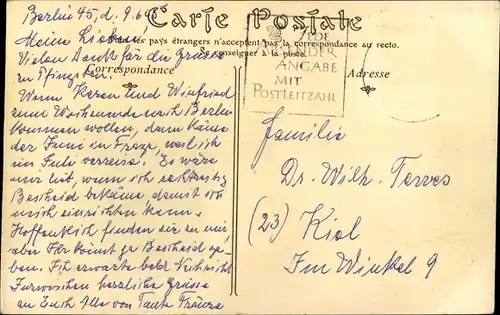 Carte Postale
Berlin 45, d. 9.6.
Meine Lieben
Tous les pays étrangers n'acceptent pas la correspondance au recto.
Vielen Dank für die Grüsse
zu Pfingsten
Correspondance
Adresse
JEDE
ANGABE
MIT
POSTLEITZAHL
Wenn Karen und Winfried
zum Wochenende nach Berlin
kommen wollen, dann käme
der Juni in Frage, weil ich
im Juli verreise. Es wäre
mir lieb, wenn ich rechtzeitig
Bescheid bekäme, damit ich
mich einrichten kann.
Hoffentlich finden sie zu mir,
aber Ihr könnt ja Bescheid ge-
ben. Ich erwarte bald Nachricht
Inzwischen herzliche Grüsse
an Euch Alle von Tante Fränze
Familie
Dr. Wilh. Terres
(23) Kiel
Im Winkel 9